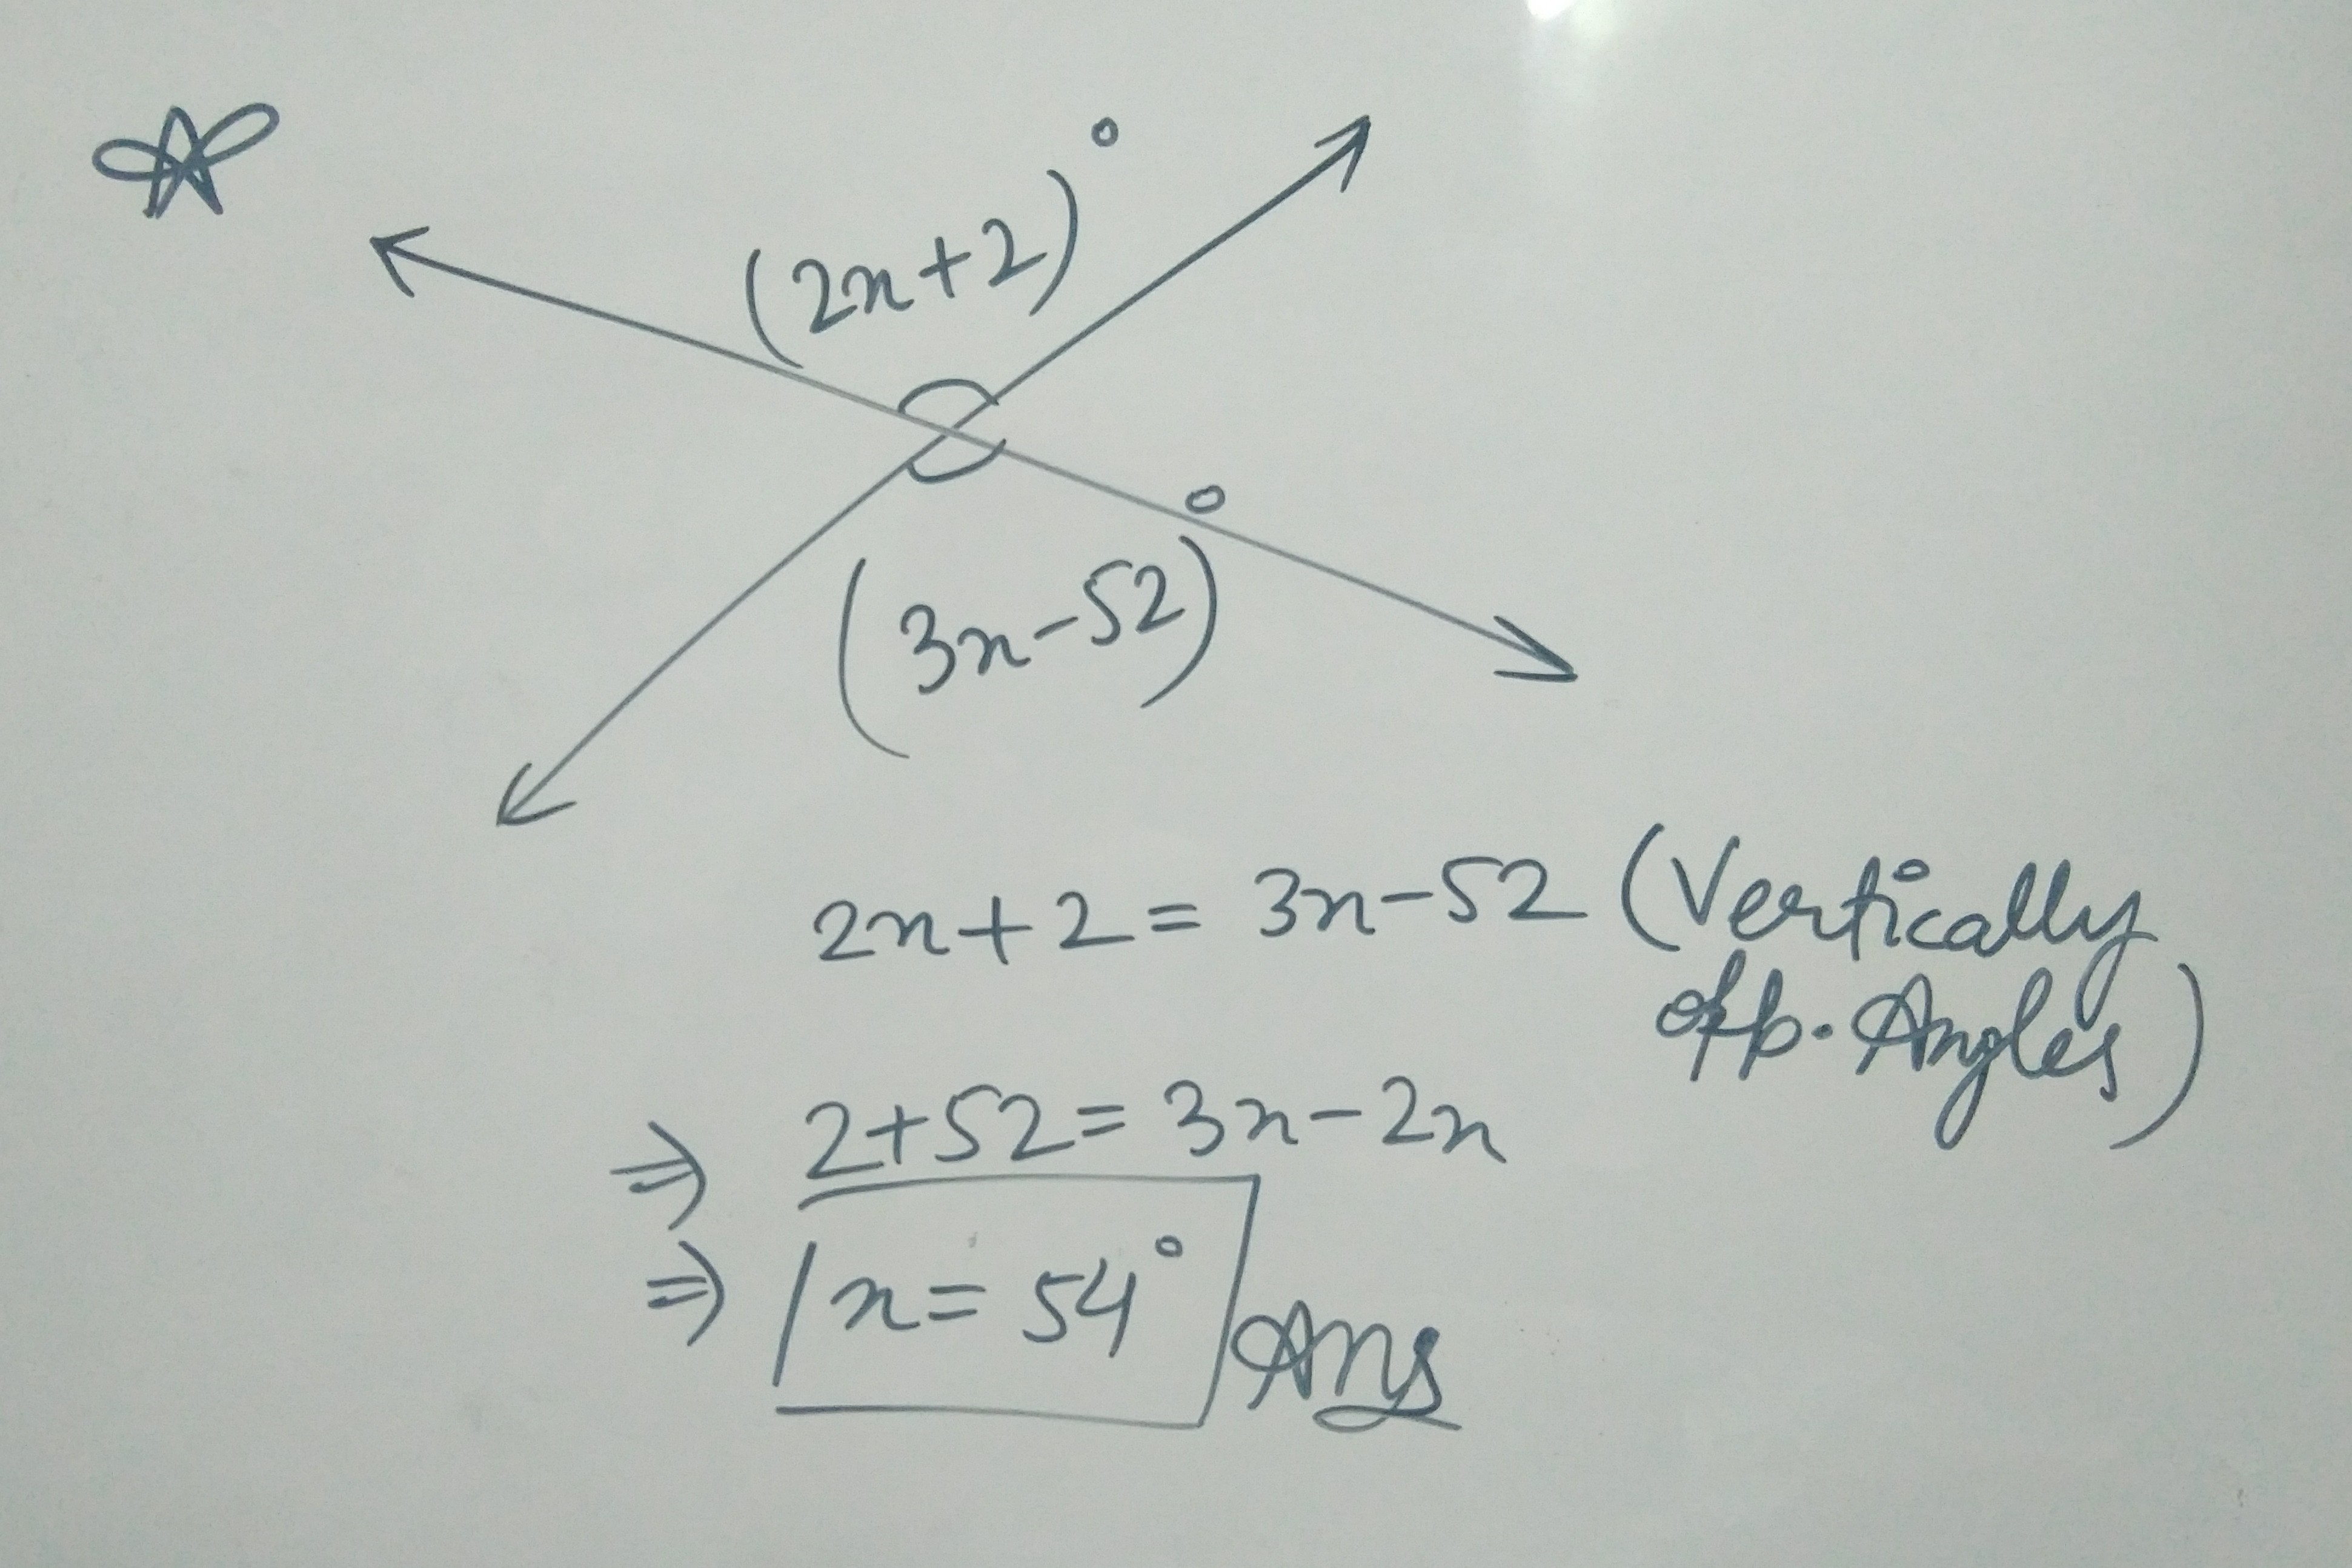 (2x+2)°
(3x-52)°
2x+2 = 3x-52 (Vertically
opp. Angles)
⇒ 2+52 = 3x-2x
⇒ x = 54° Ans